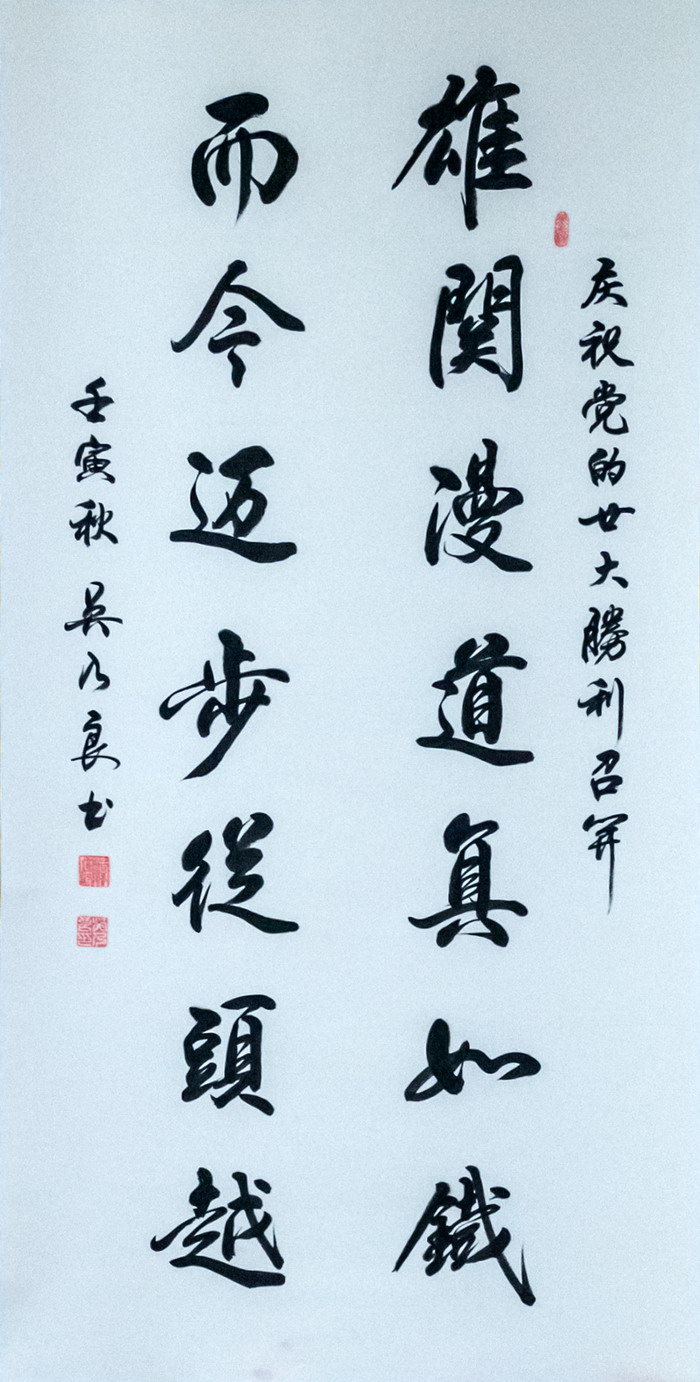 庆祝党的廿大勝利召开
雄關漫道真如鐵
而今迈步從頭越
壬寅秋 吴乃良书